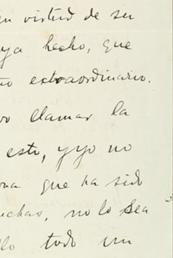 en virtud de su
ya hecho, que
extraordinario.
llamar la
esto, y yo no
que ha sido
no lo sea
todo un